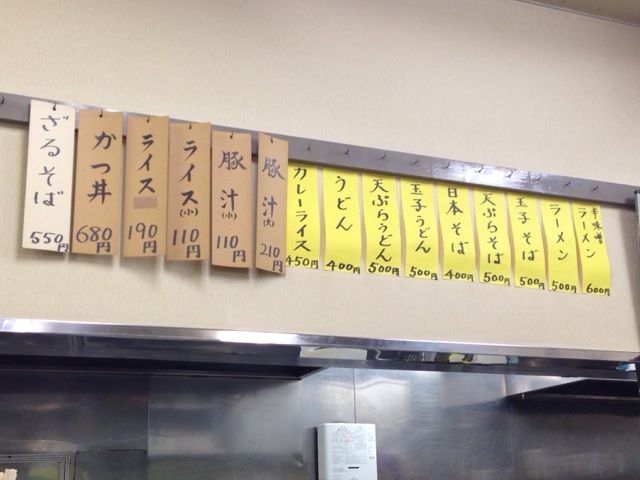 ざるそば
550円
かつ丼
680円
ライス
190円
ライス(小)
110円
豚汁(小)
110円
豚汁(大)
210円
カレーライス
450円
うどん
400円
天ぷらうどん
500円
玉子うどん
500円
日本そば
400円
天ぷらそば
500円
玉子そば
500円
ラーメン
500円
辛味噌
ラーメン
600円